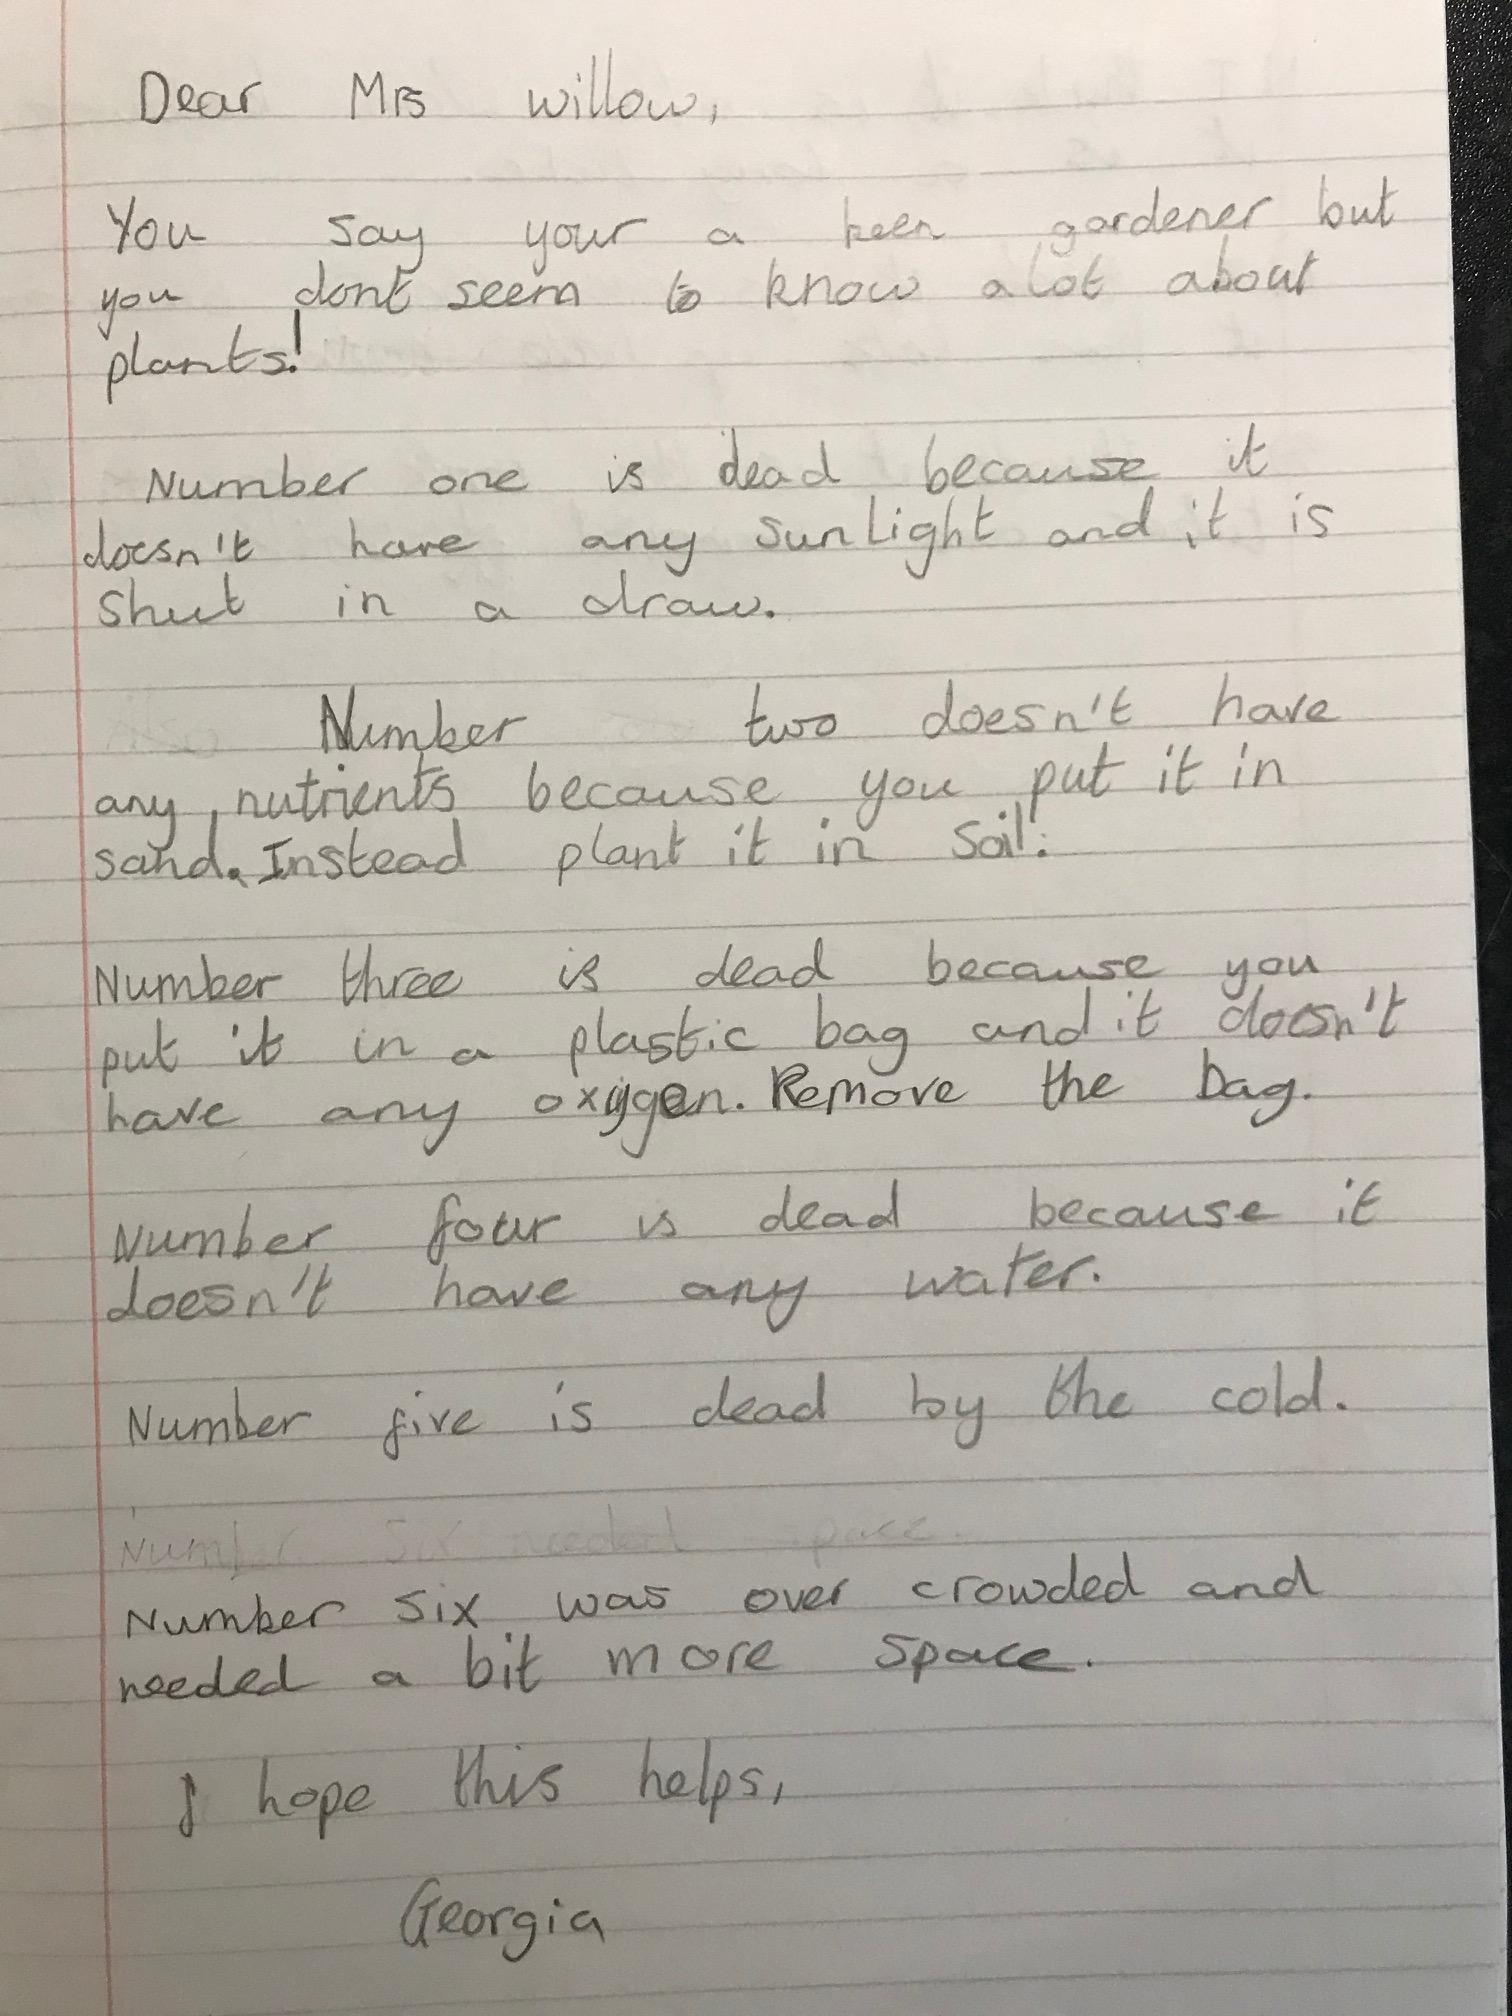 Dear Mrs willow,
You say your a keen gardener but
you dont seem to know alot about
plants!
Number one is dead because it
doesn't have any sunlight and it is
shut in a draw.
Number two doesn't have
any nutrients because you put it in
sand. Instead plant it in soil.
Number three is dead because you
put it in a plastic bag and it doesn't
have any oxygen. Remove the bag.
Number four is dead because it
doesn't have any water.
Number five is dead by the cold.
Number six needed space.
Number six was over crowded and
needed a bit more space.
I hope this helps,
Georgia